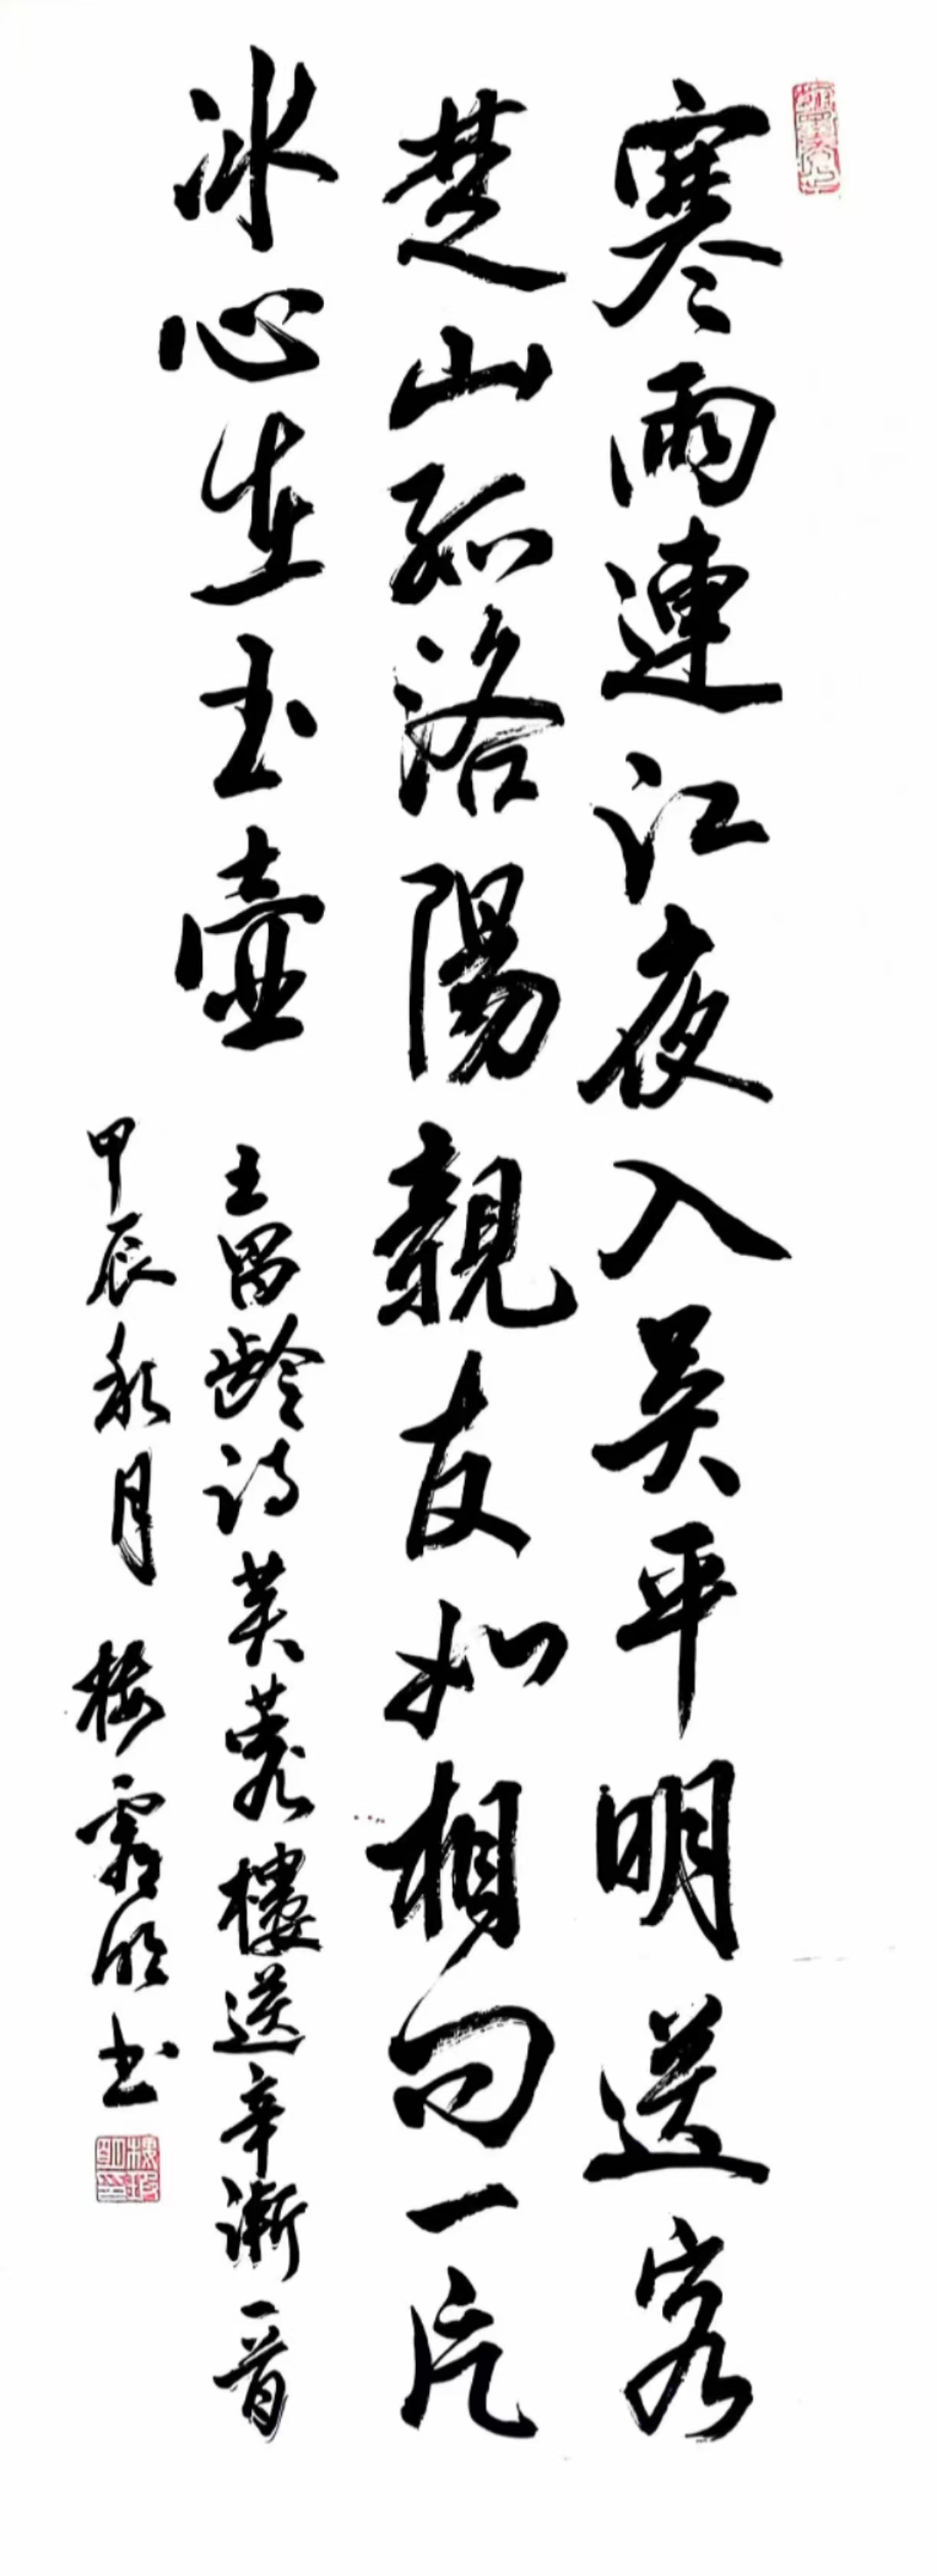 寒雨連江夜入吴平明送客
楚山孤洛陽親友如相問一片
冰心在玉壺
王昌齡詩芙蓉樓送辛漸一首
甲辰秋月 楼 明书